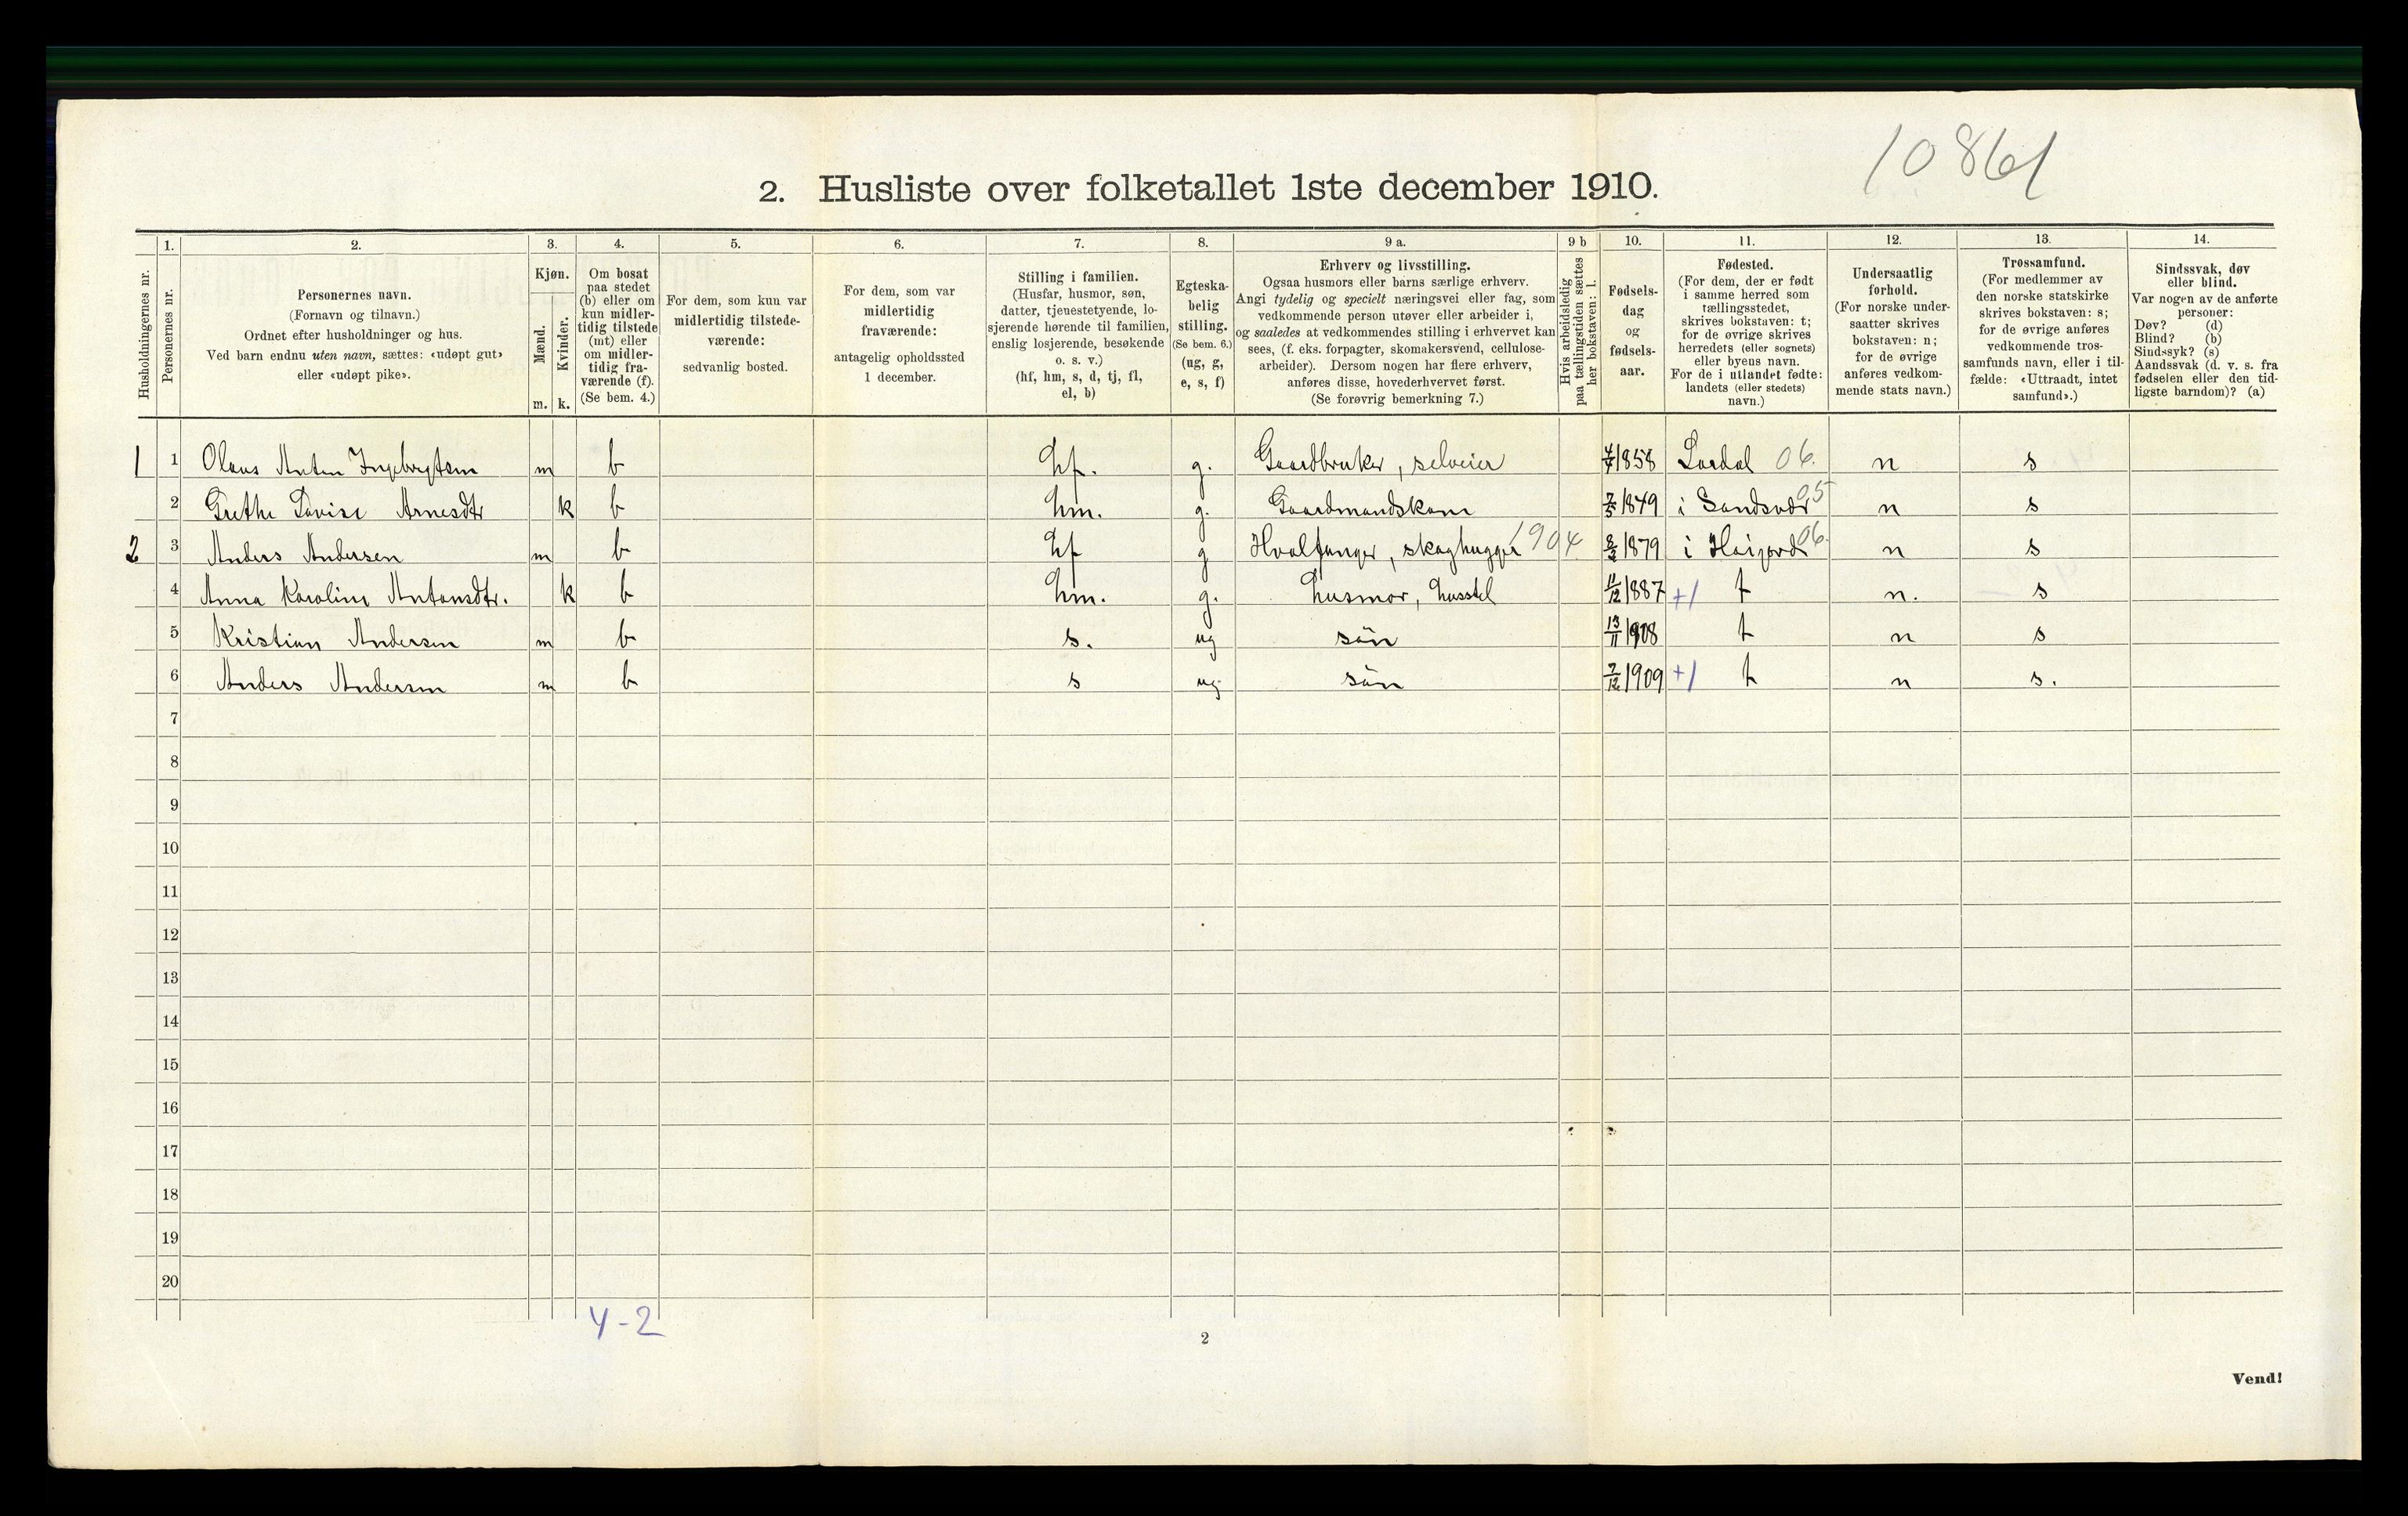 10861
2. Husliste over folketallet 1ste december 1910.
Husholdningernes nr.
1. Personernes nr.
2. Personernes navn.
(Fornavn og tilnavn.)
Ordnet efter husholdninger og hus.
Ved barn endnu uten navn, sættes: «udøpt gut»
eller «udøpt pike».
3. Kjøn.
Mænd. m.
Kvinder. k.
4. Om bosat
paa stedet
(b) eller om
kun midler-
tidig tilstede
(mt) eller
om midler-
tidig fra-
værende (f).
(Se bem. 4.)
5. For dem, som kun var
midlertidig tilstede-
værende:
sedvanlig bosted.
6. For dem, som var
midlertidig
fraværende:
antagelig opholdssted
1 december.
7. Stilling i familien.
(Husfar, husmor, søn,
datter, tjenestetyende, lo-
sjerende hørende til familien,
enslig losjerende, besøkende
o. s. v.)
(hf, hm, s, d, tj, fl,
el, b)
8. Egteska-
belig
stilling.
(Se bem. 6.)
(ug, g,
e, s, f)
9 a. Erhverv og livsstilling.
Ogsaa husmors eller barns særlige erhverv.
Angi tydelig og specielt næringsvei eller fag, som
vedkommende person utøver eller arbeider i,
og saaledes at vedkommendes stilling i erhvervet kan
sees, (f. eks. forpagter, skomakersvend, cellulose-
arbeider). Dersom nogen har flere erhverv,
anføres disse, hovederhvervet først.
(Se forøvrig bemerkning 7.)
9 b Hvis arbeidsledig
paa tællingstiden sættes
her bokstaven: l.
10. Fødsels-
dag
og
fødsels-
aar.
11. Fødested.
(For dem, der er født
i samme herred som
tællingsstedet,
skrives bokstaven: t;
for de øvrige skrives
herredets (eller sognets)
eller byens navn.
For de i utlandet fødte:
landets (eller stedets)
navn.)
12. Undersaatlig
forhold.
(For norske under-
saatter skrives
bokstaven: n;
for de øvrige
anføres vedkom-
mende stats navn.)
13. Trossamfund.
(For medlemmer av
den norske statskirke
skrives bokstaven: s;
for de øvrige anføres
vedkommende tros-
samfunds navn, eller i til-
fælde: «Uttraadt, intet
samfund».)
14. Sindssvak, døv
eller blind.
Var nogen av de anførte
personer:
Døv? (d)
Blind? (b)
Sindssyk? (s)
Aandssvak (d. v. s. fra
fødselen eller den tid-
ligste barndom)? (a)
1 1 Olaus Anton Ingebrgtsen m b hf. g. Gaardbruker, selveier 4/7 1858 Lardal 06. n s
2 Grethe Lovise Arnesdtr k b hm. g. Gaardmandskone 1849 i Sandsvær 05 n s
2 3 Anders Andersen m b hf g Hvalfanger, skoghugger 1904 1879 i Høijord 06. n s
4 Anna Karoline Antonsdtr. k b hm. g. husmor, husstel 11/12 1887 +1 t n. s
5 Kristian Andersen m b s. ug sön 13/11 1908 t n s
6 Anders Andersen m b s ug sön 7/12 1909 +1 t n s.
7
8
9
10
11
12
13
14
15
16
17
18
19
20
4-2
2
Vend!